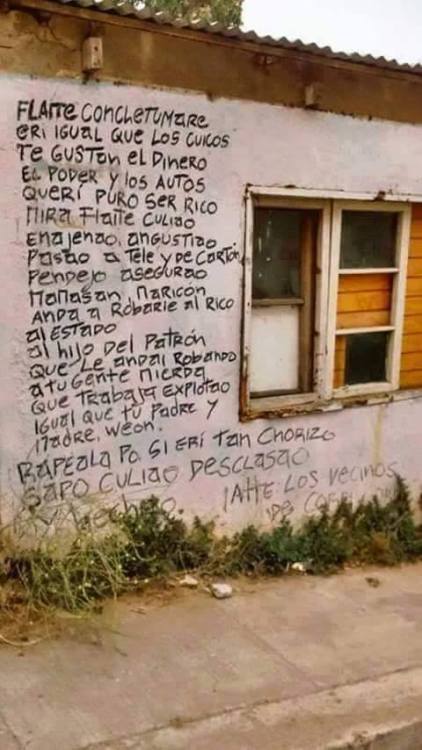 FLAITE CONCHETUMARE
ERI IGUAL QUE LOS CUICOS
TE GUSTAN EL DINERO
EL PODER Y LOS AUTOS
QUERÍ PURO SER RICO
MIRA FLAITE CULIAO
ENAJENAO, ANGUSTIAO
PASAO A TELE Y DE CARTÓN
PENDEJO ASEGURAO
MARICÓN
ANDA A ROBARLE AL RICO
AL ESTADO
AL HIJO DEL PATRÓN
QUE LE ANDAI ROBANDO
A TU GENTE MIERDA
QUE TRABAJA EXPLOTAO
IGUAL QUE TU PADRE Y
MADRE, WEÓN.
RAPEALA PO SI ERÍ TAN CHORIZO
SAPO CULIAO DESCLASAO
ATTE LOS VECINOS
DE